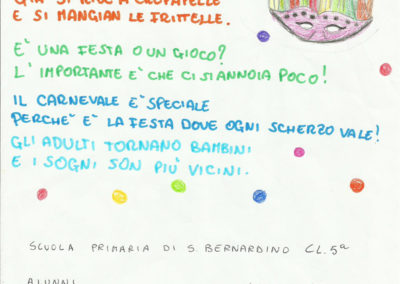 E SI MANGIAN LE FRITTELLE.
E' UNA FESTA O UN GIOCO?
L' IMPORTANTE E' CHE CI SI ANNOIA POCO!
IL CARNEVALE E' SPECIALE
PERCHE' E' LA FESTA DOVE OGNI SCHERZO VALE!
GLI ADULTI TORNANO BAMBINI
E I SOGNI SON PIU' VICINI.
SCUOLA PRIMARIA DI S. BERNARDINO CL. 5ª
ALUNNI